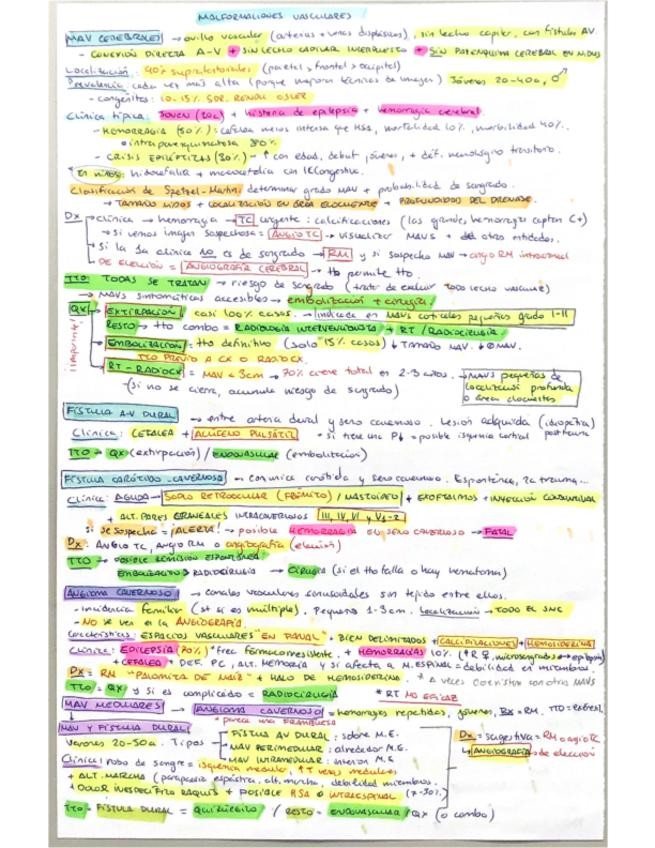 MALFORMACIONES VASCULARES
MAV CEREBRALES → ovillo vascular (arterias + venas displásicas), sin lecho capilar, con fístulas AV
- CONEXIÓN DIRECTA A-V + SIN LECHO CAPILAR INTERPUESTO + SIN PARÉNQUIMA CEREBRAL EN NIDUS
Localización: 90% supratentoriales (parietal, frontal, occipital)
Prevalencia: cada vez más alta (porque mejoran técnicas de imagen) Jóvenes 20-40a, ♂
- congénitas: 10-15% SDR. RENDU OSLER
Clínica típica: JOVEN (20a) + historia de epilepsia + hemorragia cerebral
- HEMORRAGIA (50%): cefalea menos intensa que HSA, mortalidad 10%, morbilidad 40%.
intraparenquimatosa 80%
- CRISIS EPILÉPTICAS (30%) - ↑ con edad, debut jóvenes, + déf. neurológico transitorio.
* En niños: hidrocefalia + macrocefalia con ICCongestiva.
Clasificación de Spetzel-Martin: determinar grado MAV + probabilidad de sangrado.
→ TAMAÑO NIDUS + LOCALIZACIÓN EN ÁREA ELOCUENTE + PROFUNDIDAD DEL DRENAJE.
Dx → clínica → hemorragia → TC urgente: calcificaciones (las grandes, hemorragias captan C+)
→ Si vemos imagen sospechosa = ANGIO TC → visualizar MAVS + de otras entidades.
→ Si la 1a clínica NO es de sangrado → RM y si sospecho MAV → angio RM
DE ELECCIÓN = ANGIOGRAFÍA CEREBRAL → tb permite tto.
TTO: TODAS SE TRATAN → riesgo de sangrado (tratar de excluir todo lecho vascular)
→ MAVs sintomáticas accesibles → embolización + cirugía.
QX → EXTIRPACIÓN: casi 100% casos. → indicada en MAVS corticales pequeñas grado I-II
RESTO → tto combo = RADIOLOGÍA INTERVENCIONISTA + RT / RADIOCIRUGÍA.
→ EMBOLIZACIÓN: tto definitivo (solo 15% casos) ↓ TAMAÑO MAV. ↓ Ø MAV.
TTO PREVIO A CX O RADIOCX.
→ RT - RADIOCX = MAV < 3cm → 70% cierre total en 2-3 años. → MAVS pequeñas de localización profunda o áreas elocuentes
(si no se cierra, acumula riesgo de sangrado)
FÍSTULA A-V DURAL → entre arteria dural y seno cavernoso. Lesión adquirida (idiopática) postrauma
Clínica: CEFALEA + ACÚFENO PULSÁTIL * si tiene una P↓ = posible isquemia cortical
TTO → QX (extirpación) / ENDOVASCULAR (embolización)
FÍSTULA CARÓTIDO-CAVERNOSA → comunica carótida y seno cavernoso. Espontánea, 2a trauma...
Clínica: AGUDA → SOPLO RETROOCULAR (FRÉMITO) / MASTOIDEO + EXOFTALMOS + INYECCIÓN CONJUNTIVAL
+ ALT. PARES CRANEALES INTRACAVERNOSOS III, IV, VI y V1-2
Si se sospecha = ¡ALERTA! → posible HEMORRAGIA EN SENO CAVERNOSO → FATAL
Dx: ANGIO TC, ANGIO RM o angiografía (elección)
TTO → POSIBLE REMISIÓN ESPONTÁNEA
EMBOLIZACIÓN > RADIOCIRUGÍA → CIRUGÍA (si el tto falla o hay hematoma)
ANGIOMA CAVERNOSO → canales vasculares sinusoidales sin tejido entre ellos.
- Incidencia familiar (st si es múltiples). Pequeños 1-3cm. Localización → TODO EL SNC
- NO se ven en la ANGIOGRAFÍA.
Características: ESPACIOS VASCULARES "EN PANAL" + BIEN DELIMITADOS + CALCIFICACIONES + HEMOSIDERINA
Clínica: EPILEPSIA (70%) * frec farmacorresistente. + HEMORRAGIAS 10% (↑R ♀, microsangrados ↔ epilepsia)
+ CEFALEA + DÉF. PC, ALT. MEMORIA y si afecta a M. ESPINAL = debilidad en miembros.
Dx = RM "PALOMITA DE MAÍZ" + HALO DE HEMOSIDERINA. * A veces coexisten con otras MAVS
TTO → QX y si es complicado = RADIOCIRUGÍA * RT NO EFICAZ
MAV MEDULARES → ANGIOMA CAVERNOSO = hemorragias repetidas, jóvenes, Dx = RM.
* parece una FRAMBUESA
MAV Y FÍSTULA DURAL
Varones 20-50a. Tipos → FÍSTULA AV DURAL: sobre M.E.
→ MAV PERIMEDULAR: alrededor M.E.
→ MAV INTRAMEDULAR: interior M.E.
Dx = sugestiva = RM o angioTC
→ ANGIOGRAFÍA → de elección
Clínica: robo de sangre = isquemia medular, ↑T venas medulares
+ ALT. MARCHA (paraparesia espástica, alt. marcha, debilidad miembros.
+ DOLOR INESPECÍFICO RAQUIS + POSIBLE HSA O INTRAESPINAL
TTO = FÍSTULA DURAL = QUIRÚRGICO / RESTO = ENDOVASCULAR / QX (o combo)